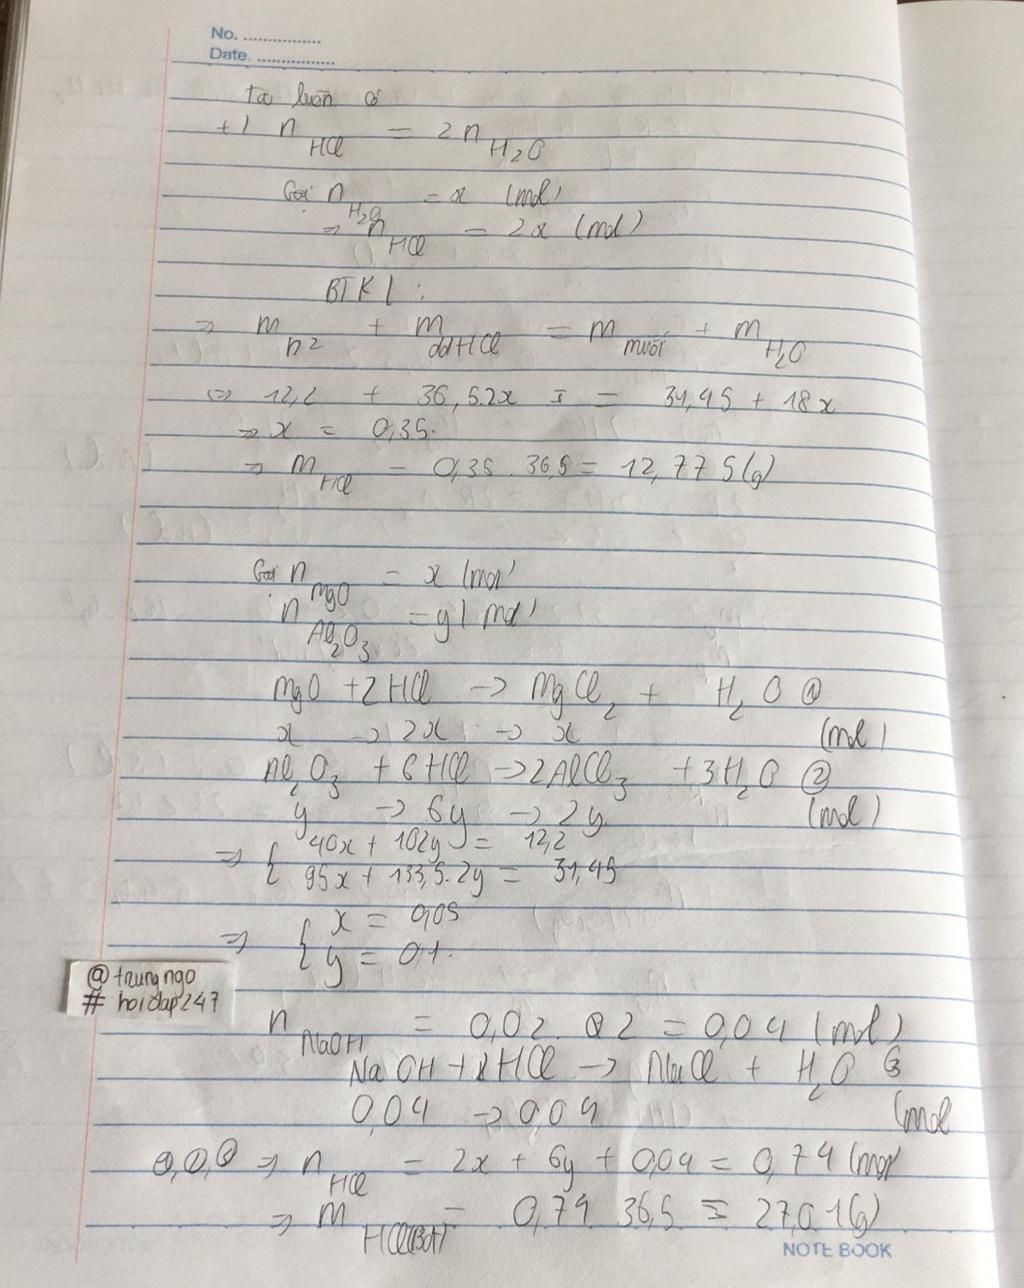 No. ................
Date. ................
Ta luôn có
+) n HCl = 2n H2O
Gọi n H2O = x (mol)
=> n HCl = 2x (mol)
BTKL:
=> m h2 + m ddHCl = m muối + m H2O
<=> 12,2 + 36,5.2x = 31,45 + 18x
=> x = 0,35.
=> m HCl = 0,35 . 36,5 = 12,775(g)
Gọi n MgO = x (mol)
n Al2O3 = y (mol)
MgO + 2HCl -> MgCl2 + H2O ①
x -> 2x -> x (mol)
Al2O3 + 6HCl -> 2AlCl3 + 3H2O ②
y -> 6y -> 2y (mol)
=> { 40x + 102y = 12,2
95x + 133,5.2y = 31,45
=> { x = 0,05
y = 0,1.
@trungngo
# hoidap247
n NaOH = 0,02 . 2 = 0,04 (mol)
NaOH + HCl -> NaCl + H2O ③
0,04 -> 0,04 (mol
①,②,③ => n HCl = 2x + 6y + 0,04 = 0,74 (mol)
=> m HCl(BĐ) = 0,74 . 36,5 = 27,01(g)
NOTE BOOK